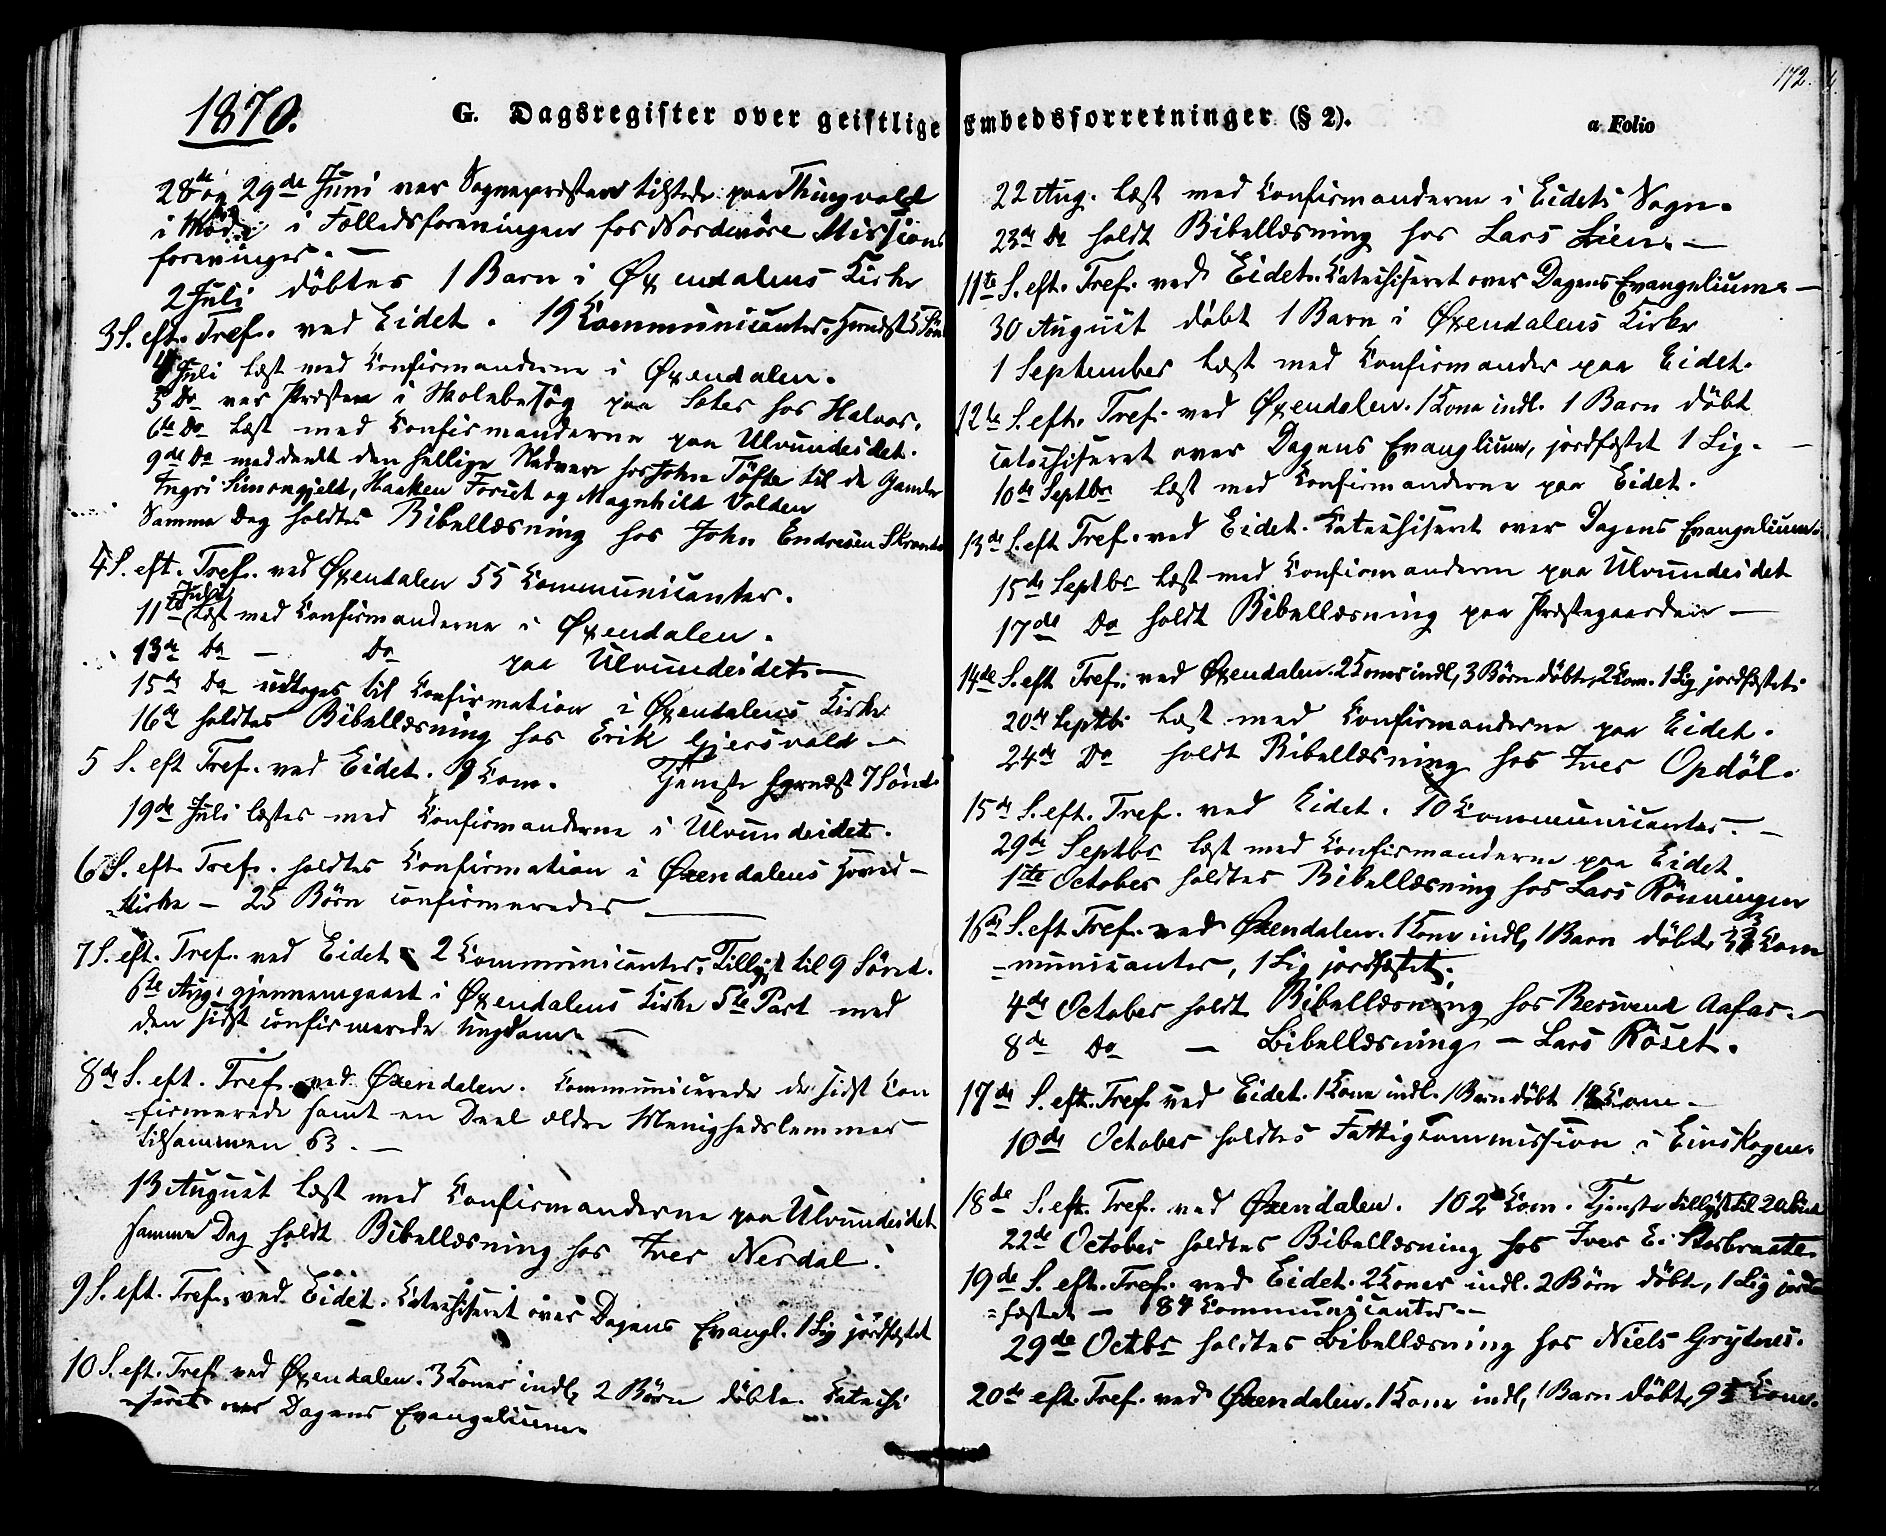 1870.
G. Dagsregister over geistlige Embedsforretninger (§ 2).
a Folio
172.
28de og 29de Juni var Sognepræsten tilstede paa Thingvold
i Møde i Fælledsforeningen for Nordmöre Missions
foreninger. —
2 Juli döbtes 1 Barn i Øxendalens Kirke
3 S. eft. Tref. ved Eidet. 19 Communicanter.
4 Juli læst med Confirmanderne i Øxendalen.
5 Do var Præsten i Skolebesög paa Sæter hos Halvor.
6te Do læst med Confirmanderne paa Ulvundeidet.
9de Do meddeelt den hellige Nadvere hos John Töfte til de Gamle
Ingri Simongjelt, Haaken Forset og Magnhild Volden
Samme Dag holdtes Bibellæsning hos John Endresen
4 S. eft. Tref. ved Øxendalen 55 Communicanter.
11te Juli læst med Confirmanderne i Øxendalen.
13de Do — Do paa Ulvundeidet. —
15de Do udtoges til Confirmation i Øxendalens Kirke
16de holdtes Bibellæsning hos Erik Gjersvold —
5 S. eft Tref. ved Eidet. 9 Com. Tjeneste hernæst 7 Sönd.
19de Juli læstes med Confirmanderne i Ulvundeidet.
6 S. eft Tref. holdtes Confirmation i Øxendalens Hoved-
kirke — 25 Börn confirmeredes —
7 S. eft. Tref. ved Eidet 2 Communicanter. Tillyst til 9 Sönd.
6te Aug. gjennemgaaet i Øxendalens Kirke 5te Part med
den sidst confirmerede Ungdom. —
8de S. eft. Tref. ved Øxendalen. Communicerede de sidst Con
firmerede samt en Deel ældre Menighedslemmer
tilsammen 63. —
13 August læst med Confirmanderne paa Ulvundeidet
samme Dag holdt Bibellæsning hos Iver Nerdal.
9 S. eft. Tref. ved Eidet. Catechiseret over Dagens Evangl. 1 Lig jordfæstet
10 S. eft. Tref. ved Øxendalen. 3 Koner indl, 2 Börn döbte. Catechi
seret over Dagens Evangelium.
22 Aug. læst med Confirmanderne i Eidets Sogn.
23de Do holdt Bibellæsning hos Lars Lien. —
11te S. eft. Tref. ved Eidet. Catechiseret over Dagens Evangelium. —
30 August döbt 1 Barn i Øxendalens Kirke
1 September læst med Confirmander paa Eidet.
12te S. eft. Tref. ved Øxendalen. 1 Kone indl. 1 Barn döbt
catechiseret over Dagens Evanglium, jordfæstet 1 Lig. —
10de Septbr læst med Confirmanderne paa Eidet.
13de S. eft Tref. ved Eidet. Catechiseret over Dagens Evangelium.
15de Septbr læst med Confirmanderne paa Ulvundeidet
17de Do holdt Bibellæsning paa Præstegaarden —
14de S. eft Tref. ved Øxendalen. 2 Koner indl, 3 Börn döbte, 2 Com. 1 Lig jordfæstet.
20de Septb. læst med Confirmanderne paa Eidet.
24de Do holdt Bibellæsning hos Iver Opdöl.
15de S. eft. Tref. ved Eidet. 10 Communicanter. —
29de Septbr læst med Confirmanderne paa Eidet
1ste October holdtes Bibellæsning hos Lars Rönningen
16de S. eft Tref. ved Øxendalen. 1 Kone indl, 1 Barn döbt, 33 Com
municanter, 1 Lig jordfæstet.
4de October holdt Bibellæsning hos Berwend Aafar. —
8de Do — Bibellæsning — Lars Röset.
17de S. eft. Tref. ved Eidet. 1 Kone indl. 1 Barn döbt Com —
10de October holdtes Fattigcommission i Einskogen.
18de S. eft. Tref. ved Øxendalen. 102 Com. Tjeneste tillyst til 20
22de October holdtes Bibellæsning hos Iver E. Storbruste.
19de S. eft. Tref. ved Eidet. 2 Koner indl. 2 Börn döbte, 1 Lig jord
fæstet — 84 Communicanter. —
29de Octbr holdtes Bibellæsning hos Niels Grytnes.
20de eft. Tref. ved Øxendalen. 1 Kone indl, 1 Barn döbt, Com.